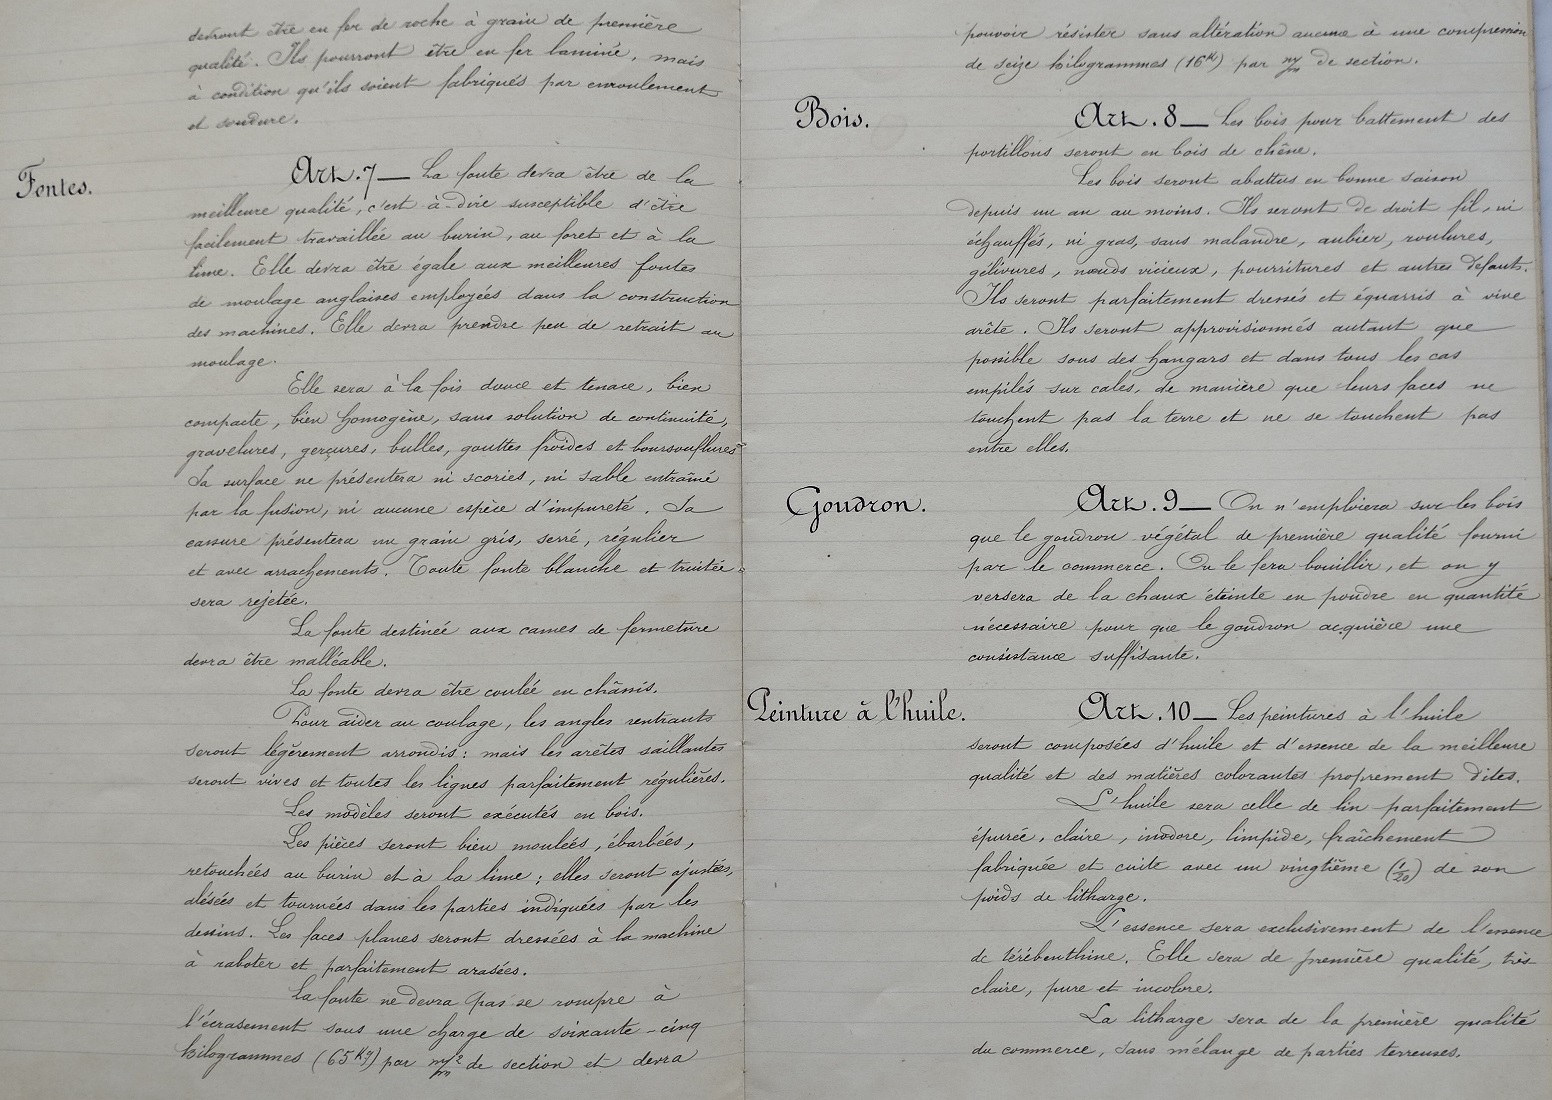 devront être en fer de roche à grain de première
qualité. Ils pourront être en fer laminé, mais
à condition qu'ils soient fabriqués par enroulement
et soudure.
Fontes.
Art. 7 — La fonte devra être de la
meilleure qualité, c'est à-dire susceptible d'être
facilement travaillée au burin, au foret et à la
lime. Elle devra être égale aux meilleures fontes
de moulage anglaises employées dans la construction
des machines. Elle devra prendre peu de retrait au
moulage.
Elle sera à la fois douce et tenace, bien
compacte, bien homogène, sans solution de continuité,
gravelures, gerçures, bulles, gouttes froides et boursouflures
Sa surface ne présentera ni scories, ni sable entraîné
par la fusion, ni aucune espèce d'impureté. Sa
cassure présentera un grain gris, serré, régulier
et avec arrachements. Toute fonte blanche et truitée
sera rejetée.
La fonte destinée aux cames de fermeture
devra être malléable.
La fonte devra être coulée en châssis.
Pour aider au coulage, les angles rentrants
seront légèrement arrondis: mais les arêtes saillantes
seront vives et toutes les lignes parfaitement régulières.
Les modèles seront exécutés en bois.
Les pièces seront bien moulées, ébarbées,
retouchées au burin et à la lime; elles seront ajustées,
alésées et tournées dans les parties indiquées par les
dessins. Les faces planes seront dressées à la machine
à raboter et parfaitement arasées.
La fonte ne devra pas se rompre à
l'écrasement sous une charge de soixante-cinq
kilogrammes (65 Kg) par m/m² de section et devra
pouvoir résister sans altération aucune à une compression
de seize kilogrammes (16 K) par m/m de section.
Bois.
Art. 8 — Les bois pour battement des
portillons seront en bois de chêne.
Les bois seront abattus en bonne saison
depuis un an au moins. Ils seront de droit fil, ni
échauffés, ni gras, sans malandre, aubier, roulures,
gélivures, nœuds vicieux, pourritures et autres défauts.
Ils seront parfaitement dressés et équarris à vive
arête. Ils seront approvisionnés autant que
possible sous des hangars et dans tous les cas
empilés sur cales, de manière que leurs faces ne
touchent pas la terre et ne se touchent pas
entre elles.
Goudron.
Art. 9 — On n'emploiera sur les bois
que le goudron végétal de première qualité fourni
par le commerce. On le fera bouillir, et on y
versera de la chaux éteinte en poudre en quantité
nécessaire pour que le goudron acquière une
consistance suffisante.
Peinture à l'huile.
Art. 10 — Les peintures à l'huile
seront composées d'huile et d'essence de la meilleure
qualité et des matières colorantes proprement dites.
L'huile sera celle de lin parfaitement
épurée, claire, inodore, limpide, fraîchement
fabriquée et cuite avec un vingtième (1/20) de son
poids de litharge.
L'essence sera exclusivement de l'essence
de térébenthine. Elle sera de première qualité, très
claire, pure et incolore.
La litharge sera de la première qualité
du commerce, sans mélange de parties terreuses.